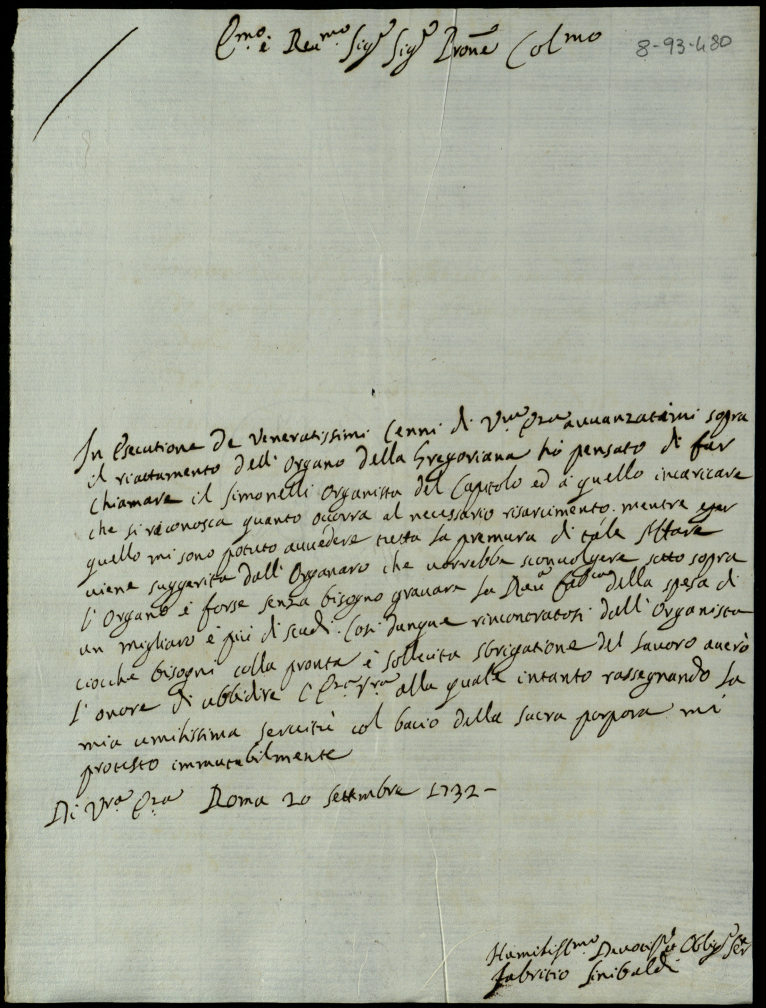 E.mo e Reu.mo Sig.r Sig.r Prone Colmo
8-93-480
In Esecutione de Veneratissimi Cenni di V.ra Em.za auuanzatimi sopra
il riattamento dell' Organo della Gregoriana hò pensato di far
chiamare il Simonelli Organista del Capitolo ed à quello incaricare
che si riconosca quanto occorra al necessario risarcimento. mentre per
quello mi sono potuto auuedere tutta la premura di tale Affare
uiene suggerita dall' Organaro che uorrebbe sconuolgere sotto sopra
l'Organo e forse senza bisogno grauare la Reu.a Fabrica della spesa di
un migliaro e più di scudi. Così dunque rincontratosi dall' Organista
ciocche bisogni colla pronta e sollecita sbrigatione del lauoro auerò
l'onore di ubbidire l'Em.za V.ra alla quale intanto rassegnando la
mia umilissima seruitù col bacio della sacra porpora mi
protesto immutabilmente
Di V.ra Em.za Roma 20 Settembre 1732-
Humiliss.mo Deuotiss.o et Oblig.o Ser
Fabritio Sinibaldi